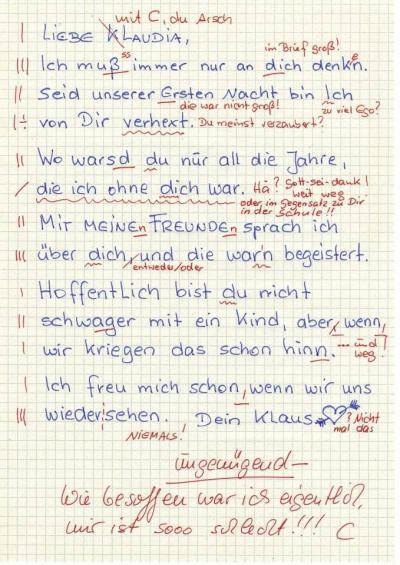 mit C, du Arsch
| LIEBE KLAUDIA,
im Brief groß!
||| Ich muß ss immer nur an dich denkn. e
|| Seid unserer Ersten Nacht bin Ich
die war nicht groß! zu viel Ego?
|÷ von Dir verhext. Du meinst verzaubert?
|| Wo warsd du nur all die Jahre,
/ die ich ohne dich war. Hä? Gott-sei-dank! weit weg
oder, im Gegensatz zu Dir in der Schule!!
|| MIT MEINEn FREUNDEn sprach ich
||| über dich, und die war'n begeistert.
entweder/oder
| Hoffentlich bist du nicht
|| schwager mit ein Kind, aber, wenn,
| wir kriegen das schon hinn. ... und weg!
| Ich freu mich schon, wenn wir uns
||| wiedersehen. Dein Klaus ? Nicht mal das
NIEMALS!
ungenügend –
Wie besoffen war ich eigentlich,
mir ist sooo schlecht!!! C